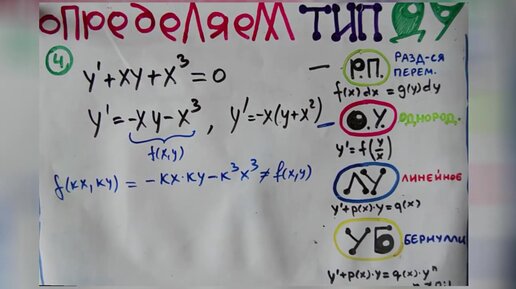 определяем ТИП ДУ
4.
y' + xy + x³ = 0
y' = -xy - x³ , y' = -x(y + x²)
f(x,y)
f(kx, ky) = -kx·ky - k³x³ ≠ f(x,y)
— Р.П. РАЗД-СЯ ПЕРЕМ.
f(x)dx = g(y)dy
— О.У. ОДНОРОД.
y' = f(y/x)
ЛУ ЛИНЕЙНОЕ
y' + p(x)·y = q(x)
УБ БЕРНУЛЛИ
y' + p(x)·y = q(x)·yⁿ